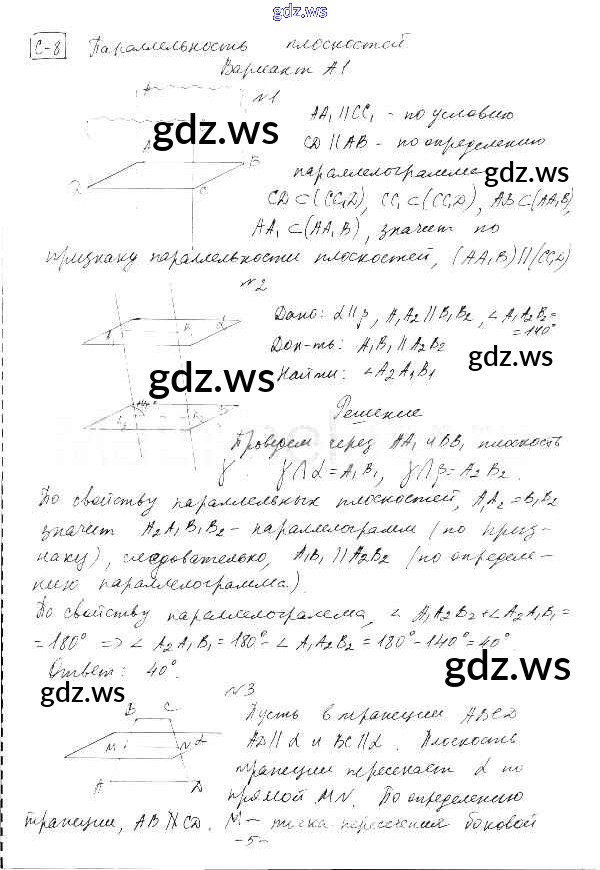 gdz.ws
С-8 Параллельность плоскостей
Вариант А1
№1
AA₁ ∥ CC₁ - по условию
CD ∥ AB - по определению
gdz.ws
параллелограмма
gdz.ws
B
C
CD ⊂ (CC₁D), CC₁ ⊂ (CC₁D), AB ⊂ (AA₁B),
AA₁ ⊂ (AA₁B), значит по
признаку параллельности плоскостей, (AA₁B) ∥ (CC₁D)
№2
Дано: α ∥ β, A₁A₂ ∥ B₁B₂, ∠A₁A₂B₂ =
= 140°
α
Док-ть: A₁B₁ ∥ A₂B₂
gdz.ws
Найти: ∠A₂A₁B₁
gdz.ws
Решение
Проведем через AA₁ и BB₁ плоскость
γ. γ ∩ α = A₁B₁, γ ∩ β = A₂B₂.
По свойству параллельных плоскостей, A₁A₂ = B₁B₂
значит A₂A₁B₁B₂ - параллелограмм (по приз-
наку), следовательно, A₁B₁ ∥ A₂B₂ (по определе-
нию параллелограмма.)
По свойству параллелограмма, ∠A₁A₂B₂ + ∠A₂A₁B₁ =
= 180° => ∠A₂A₁B₁ = 180° - ∠A₁A₂B₂ = 180° - 140° = 40°
Ответ: 40°.
gdz.ws
gdz.ws
№3
B C
M N α
A D
Пусть в трапеции ABCD
AD ∥ α и BC ∥ α. Плоскость
трапеции пересекает α по
gdz.ws
прямой MN. По определению
трапеции, AB ∦ CD. M - точка пересечения боковой
-5-